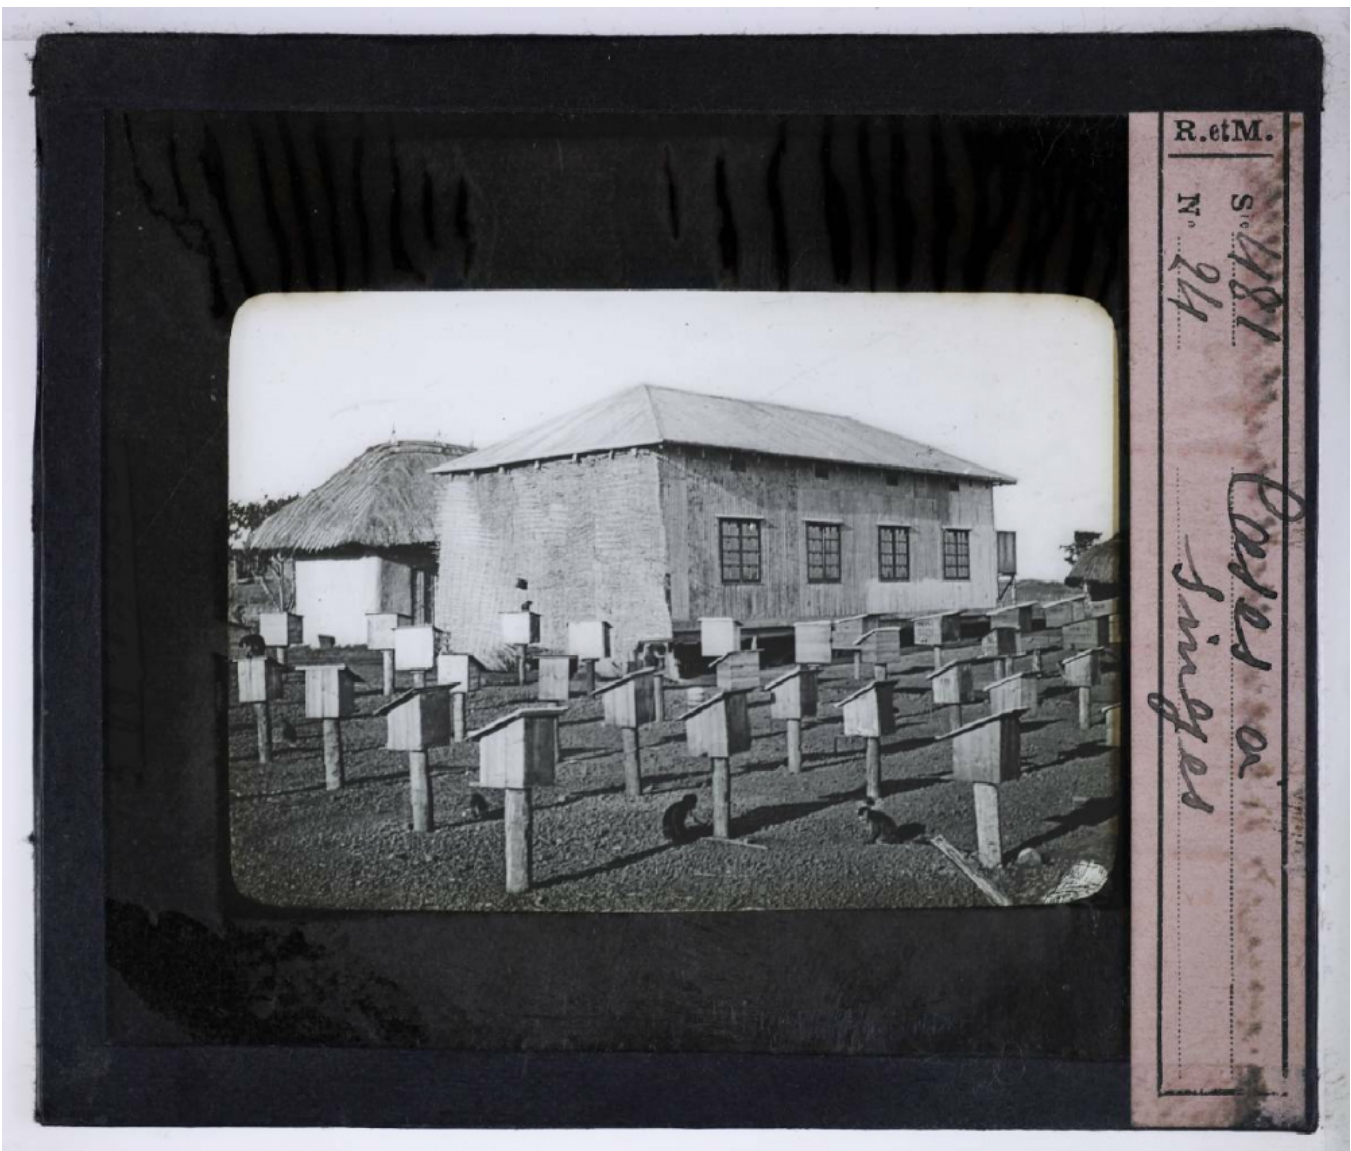 R.etM.
Sie 481
N° 24
Cases à
Singes